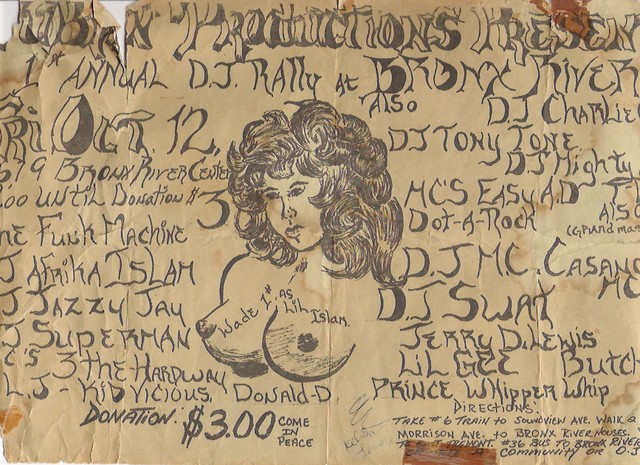 Productions Presen
1st Annual D.J. Rally at Bronx River
Fri Oct. 12,
619 Bronx River Center
:00 until Donation $3
he Funk Machine
J Afrika Islam
J Jazzy Jay
J Superman
C's 3 the Hardway
L.J - Kid Vicious, Donald-D.
Donation. $3.00 Come
in
Peace
Wade 1st as
Lil Islam.
Also
DJ Charlie
DJ Tony Tone
DJ Mighty
MC's Easy A.D
Dot-A-Rock Als
(Grand mas
D.J MC. Casano
DJ Sway MC
Jerry D. Lewis
Lil Gee Butch
Prince Whipper Whip
Directions:
Take #6 Train to Soundview Ave. Walk 2
Morrison Ave. to Bronx River Houses.
Tremont. #36 Bus to Bronx River
A Community or O.